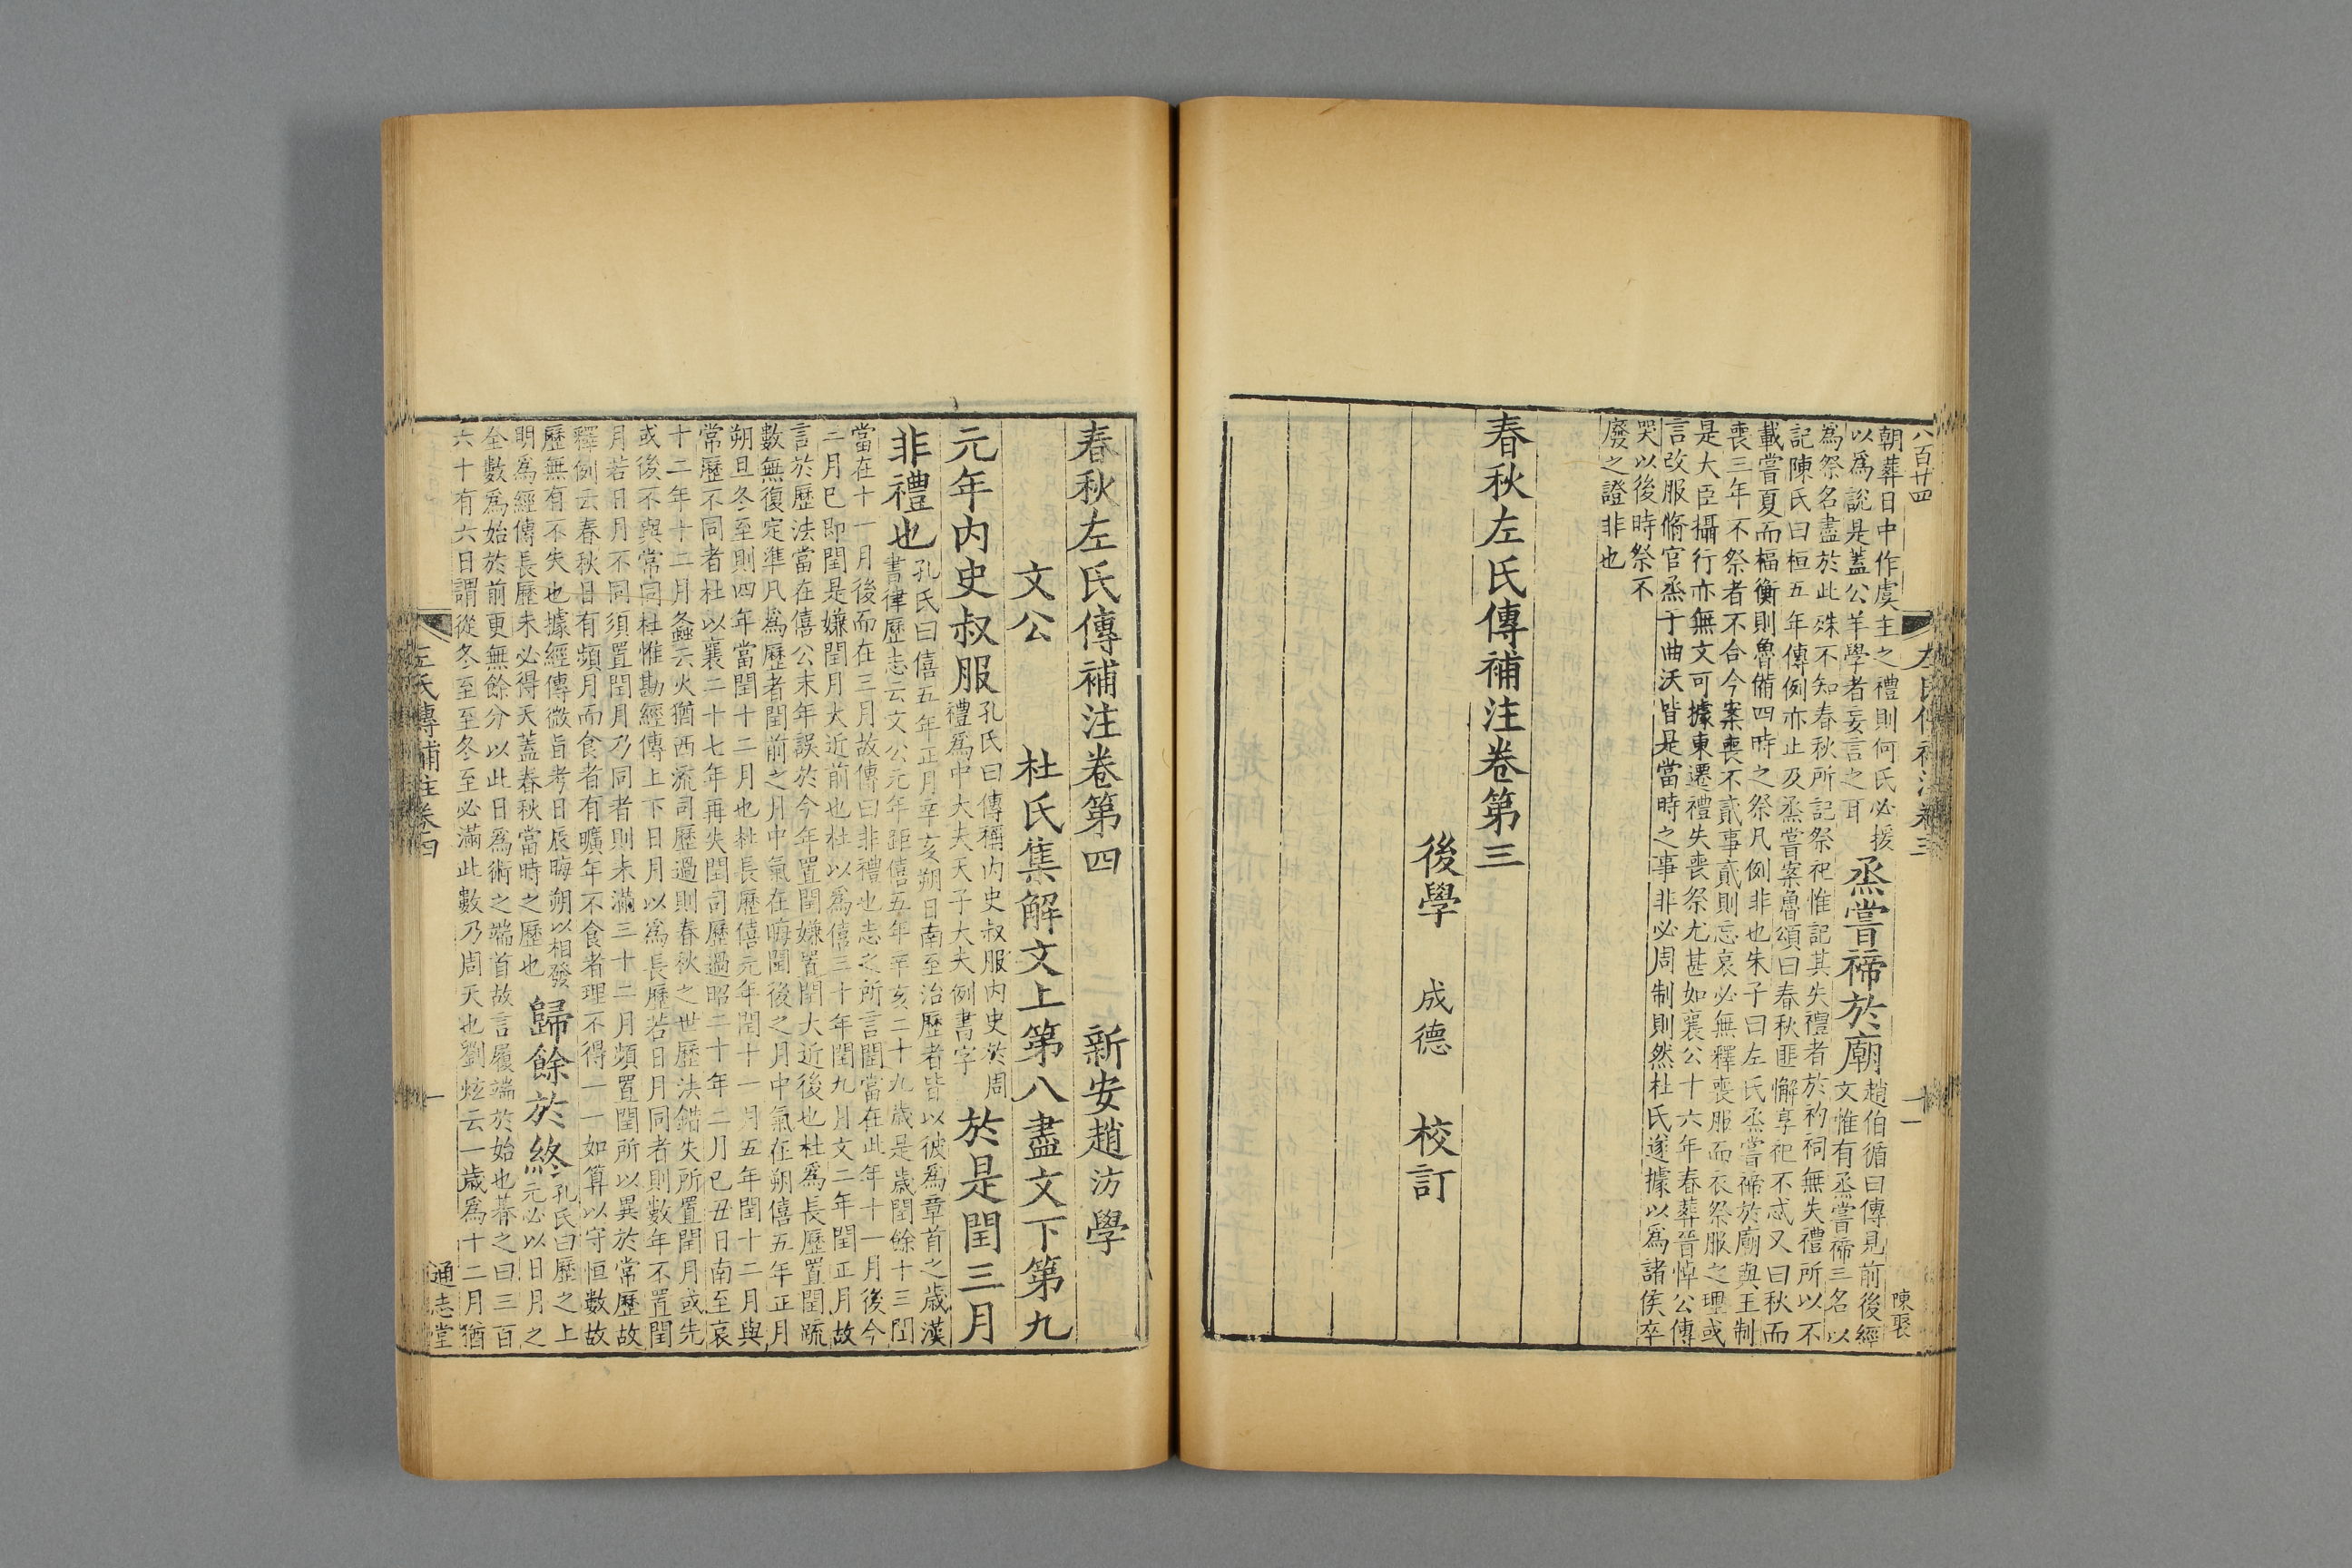 八百廿四
左氏傳補注卷三
十一
陳聚
朝葬日中作虞主之禮則何氏必援
以為說是蓋公羊學者妄言之耳
烝嘗禘於廟
趙伯循曰傳見前後經
文惟有烝嘗禘三名以
為祭名盡於此殊不知春秋所記祭祀惟記其失禮者於礿祠無失禮所以不
記陳氏曰桓五年傳例亦止及烝嘗案魯頌曰春秋匪懈享祀不忒又曰秋而
載嘗夏而楅衡則魯備四時之祭凡例非也朱子曰左氏烝嘗禘於廟與王制
喪三年不祭者不合今案喪不貳事貳則忘哀必無釋喪服而衣祭服之理或
是大臣攝行亦無文可據東遷禮失喪祭尤甚如襄公十六年春葬晉悼公傳
言改服脩官烝于曲沃皆是當時之事非必周制則然杜氏遂據以為諸侯卒
哭以後時祭不
廢之證非也
春秋左氏傳補注卷第三
後學 成德 校訂
春秋左氏傳補注卷第四 新安趙汸學
文公 杜氏集解文上第八盡文下第九
元年内史叔服
孔氏曰傳稱内史叔服内史於周
禮為中大夫天子大夫例書字
於是閏三月
非禮也
孔氏曰僖五年正月辛亥朔日南至治歷者皆以彼為章首之歲漢
書律歷志云文公元年距僖五年辛亥二十九歲是歲閏餘十三閏
當在十一月後而在三月故傳曰非禮也志之所言閏當在此年十一月後今
三月已即閏是嫌閏月大近前也杜以為僖三十年閏九月文二年閏正月故
言於歷法當在僖公末年誤於今年置閏嫌置閏大近後也杜為長歷置閏疏
數無復定準凡為歷者閏前之月中氣在晦閏後之月中氣在朔僖五年正月
朔旦冬至則四年當閏十二月也杜長歷僖元年閏十一月五年閏十二月與
常歷不同者杜以襄二十七年再失閏司歷過昭二十年二月己丑日南至哀
十二年十二月螽云火猶西流司歷過則春秋之世歷法錯失所置閏月或先
或後不與常同杜惟勘經傳上下日月以為長歷若日月同者則數年不置閏
月若日月不同須置閏月乃同者則未滿三十二月頻置閏所以異於常歷故
釋例云春秋日有頻月而食者有曠年不食者理不得一一如算以守恒數故
歷無有不失也據經傳微旨考日辰晦朔以相發
明為經傳長歷未必得天蓋春秋當時之歷也
歸餘於終
孔氏曰歷之上
元必以日月之
全數為始於前更無餘分以此日為術之端首故言履端於始也朞之曰三百
六十有六日謂從冬至至冬至必滿此數乃周天也劉炫云一歲為十二月猶
左氏傳補注卷四
一
通志堂